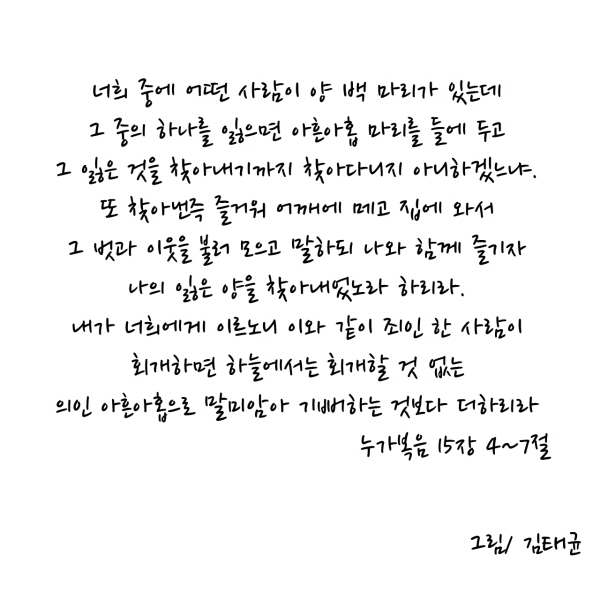 너희 중에 어떤 사람이 양 백 마리가 있는데
그 중의 하나를 잃으면 아흔아홉 마리를 들에 두고
그 잃은 것을 찾아내기까지 찾아다니지 아니하겠느냐.
또 찾아낸즉 즐거워 어깨에 메고 집에 와서
그 벗과 이웃을 불러 모으고 말하되 나와 함께 즐기자
나의 잃은 양을 찾아내었노라 하리라.
내가 너희에게 이르노니 이와 같이 죄인 한 사람이
회개하면 하늘에서는 회개할 것 없는
의인 아흔아홉으로 말미암아 기뻐하는 것보다 더하리라
누가복음 15장 4~7절
그림/ 김태균